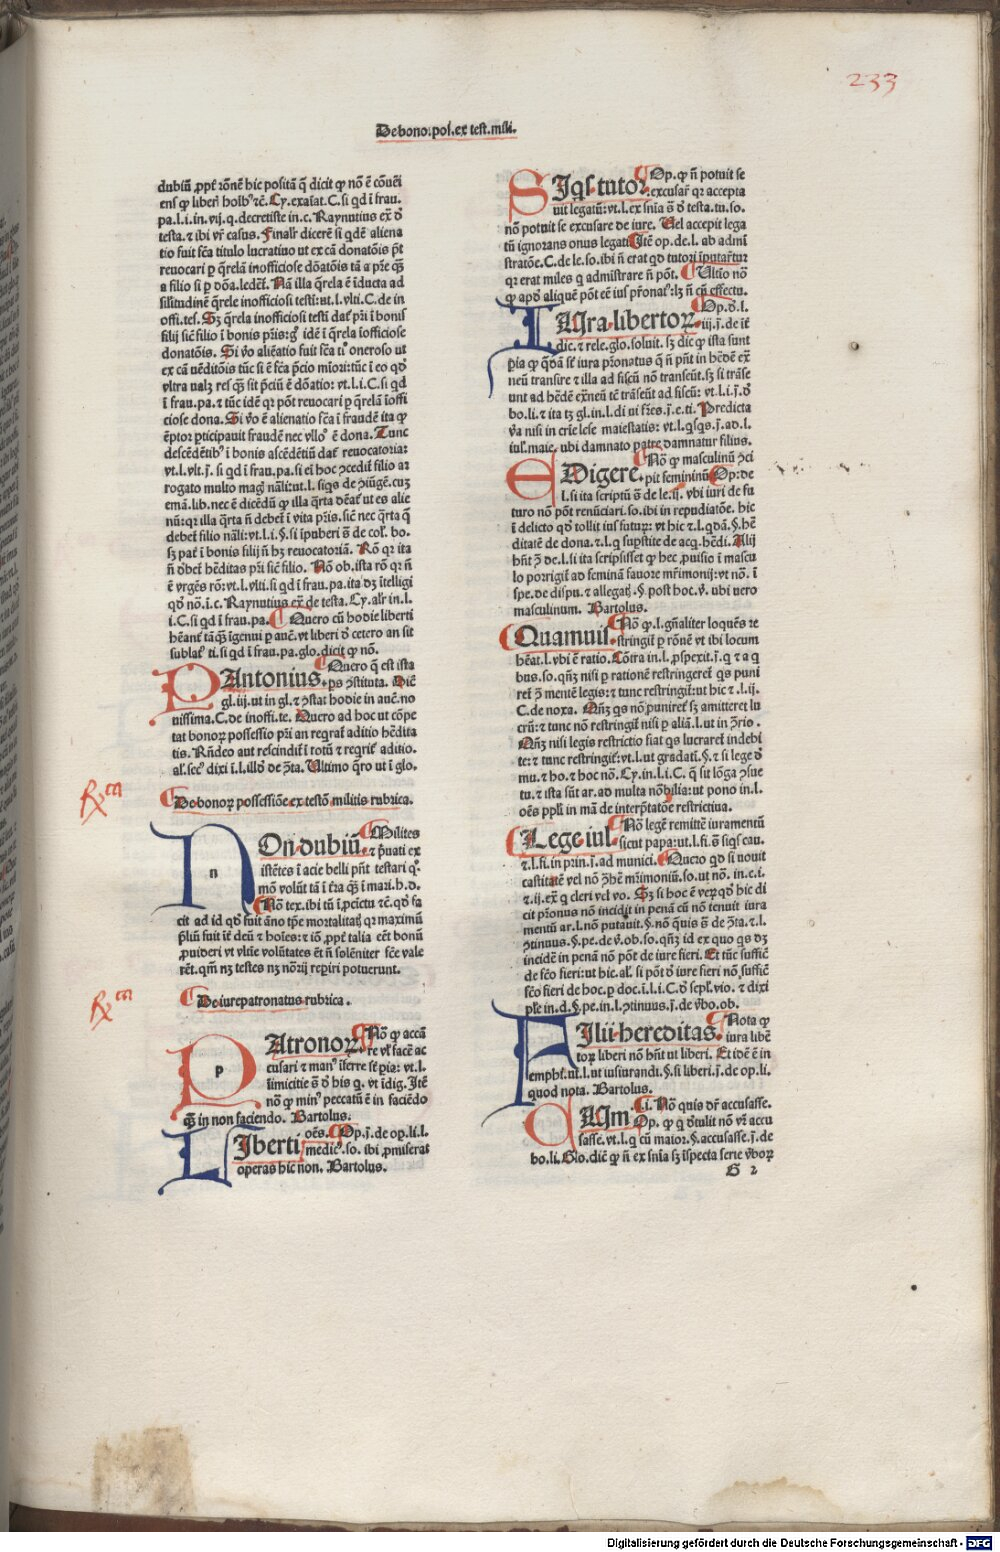 233
De bono. pos. ex test. mili.
dubiū ꝓpt̄ rōnē hic positā q̄ dicit ꝙ nō ē cōuēi
ens ꝙ liberi
pa. l. i. in. vij. q. decretiste in. c. Raynutius ex̄ ð
testa. ⁊ ibi vr̄ casus. Finalr̄ dicerē si qdē aliena
tio fuit fc̄a titulo lucratiuo ut ex cā donatōis
reuocari p q̄relā inofficiose
a filio si p Nā illa q̄rela ē īducta ad
silitudinē q̄rele inofficiosi testi: ut. l. vlti. C. de in
offi. tes. Sꝫ q̄rela inofficiosi testi dat̄ pr̄i ī bonis
filij sic̄ filio ī bonis pr̄is: idē ī q̄rela īofficiose
donatōis. Si v̄o aliēatio fuit fc̄a oneroso ut
ex cā vēditōis tūc si ē fc̄a p̄cio miori: tūc ī eo qð
vltra ualꝫ res sit p̄ciū ē dōatio: vt. l. i. C. si qd
ī frau. pa. ⁊ tūc idē qr pōt reuocari p q̄relā īoffi
ciose dona. Si v̄o ē alienatio fc̄a ī fraudē ita ꝙ
ēptor pticipauit fraudē nec ē dona. Tunc
descēdētibꝰ ī bonis ascēdētiū dat̄ reuocatoria:
vt. l. vlt. j̄. si qd ī frau. pa. si ei hoc filio ar
rogato multo nāli: ut. l. siqs de cuꝫ
emā. lib. nec ē dicēdū ꝙ illa q̄rta ut es alie
nū: qr illa q̄rta n̄ debet̄ ī vita pr̄is. sic̄ nec q̄rta q̄
debet̄ filio nāli: vt. l. i. §. si īpuberi s̄ de col. bo.
sꝫ pat̄ ī bonis filij n̄ hꝫ reuocatoriā. Rō qr ita
n̄ ðbet̄ hēditas pr̄i sic̄ filio. Nō ob. ista rō qr n̄
ē vrgēs rō: vt. l. vlti. si qd ī frau. pa. ita dꝫ ītelligi
qð nō. ī. c. Raynutius ex̄ de testa. Cy. alr̄ in. l.
i. C. si qd ī frau. pa. Quero cū hodie liberti
igenui p auc̄. vt liberi ð cetero an sit
sublat̄ ti. si qd ī frau. pa. glo. dicit ꝙ nō.
PAntonius. Quero q̄ est ista
ps ꝯstituta. Dic̄
gl. iij. ut in gl. ⁊ ꝯstat hodie in auc̄. no
uissima. C. de inoffi. te. Quero ad hoc ut cōpe
tat bonoꝝ possessio pr̄i an reqrat̄ aditio hēdita
tis. Rn̄deo aut rescindit̄ ī totū ⁊ reqrit̄ aditio.
al. dixi ī. l. illð de ꝯta. Ultimo q̄ro ut ī glo.
Rxca
De bonoꝝ possessiōe ex testō militis rubrica.
n
On dubiū. Milites
⁊ p̄uati ex
istētes ī acie belli pn̄t testari
mō volūt tā ī t̄ra ī mari. h. d.
Nō tex. ibi tū ī. ꝓcīctu ⁊c̄. qð fa
cit ad id qð fuit āno tp̄e qr maximū
p̄liū fuit īt̄ deū ⁊ hoīes: ⁊ iō ꝓpt̄ talia eēt bonū
ꝓuideri vt vltīe volūtates ēt n̄ solēniter fc̄e vale
rēt. qm̄ nꝫ testes nꝫ nōrij repiri potuerunt.
Rxca
De iure patronatus rubrica.
p
Atronoꝝ. Nō ꝙ accā
re facē ac
cusari ⁊ manꝰ īferre st̄ pia: vt. l.
īimicitie s̄ ð his q. vt īdig. Itē
nō ꝙ minꝰ peccatū ē in faciēdo
in non faciendo. Bartolus.
LIberti oēs. Op. j̄. de op. li. l.
medicꝰ. so. ibi ꝓmiserat
operas hic non. Bartolus.
SIqs tutor. Op. ꝙ n̄ potuit se
excusar̄ qr accepta
uit legatū: vt. l. ex snīa s̄ ð testa. tu. so.
nō potuit se excusare de iure. Uel accepit lega
tū ignorans onus legati. Itē op. de. l. ab admi
stratōe. C. de le. so. ibi n̄ erat qð tutori īputaret̄
qr erat miles q admistrare n̄ pōt. Ultīo nō
ꝙ apð aliquē pōt eē ius pr̄onat: lꝫ n̄ cū effectu.
IUra libertoꝝ. Op. ð. l.
iij. j̄. de it̄
dic. ⁊ rele. glo. soluit. sꝫ dic ꝙ ista sunt
pr̄onatus q n̄ pn̄t in hēdē ex
neū transire ⁊ illa ad fiscū nō transeūt. sꝫ si trāse
unt ad hēdē ex̄neū tē trāseūt ad fiscū: vt. l. i. j̄. ð
bo. li. ⁊ ita tꝫ gl. in. l. di ui fr̄es. j̄. e. ti. Predicta
v̄a nisi in crīe lese maiestatis: vt. l. qsqs. j̄. ad. l.
iul. maie. ubi damnato patre damnatur filius.
EDigere. Nō ꝙ masculinū ꝯci
pit femininū. Op: de
l. si ita scriptū s̄ de le. ij. vbi iuri de fu
turo nō pōt renūciari. so. ibi in repudiatōe. hic
ī delicto qð tollit ius futuꝝ: vt hic ⁊. l. qdā. §. hē
ditatē de dona. ⁊. l. q supstite de acq. hēdi. Alij
hn̄t ꝯ de. l. si ita scripsisset ꝙ hec ꝓuisio ī mascu
lo porrigit̄ ad feminā fauore mr̄imonij: vt nō. ī
spe. de dispu. ⁊ allegatꝭ. §. post hoc. v̄. ubi vero
masculinum. Bartolus.
Quamuis. Nō ꝙ. l. gn̄aliter loquēs re
stringit̄ p rōnē vt ibi locum
hēat. l. vbi ē ratio. Cōtra in. l. ꝓspexit. j̄. q ⁊ a q
bus. so. qn̄ꝫ nisi p rationē restringeret̄ qs puni
ret̄ ꝯ mentē legis: ⁊ tunc restringit̄: ut hic ⁊. l. ij.
C. de noxa. Qn̄ꝫ qs nō puniret̄ sꝫ amitteret lu
crū: ⁊ tunc nō restringit̄ nisi p aliā. l. ut in ꝯrio.
Qn̄ꝫ nisi legis restrictio fiat qs lucraret̄ indebi
te: ⁊ tunc restringit̄: vt. l. ut gradati. §. ⁊ si lege ð
mu. ⁊ ho. ⁊ hoc nō. Cy. in. l. i. C. q̄ sit lōga ꝯsue
tu. ⁊ ista sūt ar. ad multa nōbilia: ut pono in. l.
oēs ppl̄i in mā de interp̄tatōe restrictiua.
Lege iul. Nō legē remittē iuramentū
sicut papa: ut. l. fi. s̄ siqs cau.
⁊. l. fi. in prin. j̄. ad munici. Quero qð si nouit
castitatē vel nō ꝯhē mr̄imoniū. so. ut nō. in. c. i.
⁊. ij. ex̄ q̄ cleri vel vo. Sꝫ si hoc ē veꝝ qð hic di
cit pr̄onus nō incidit in penā cū nō tenuit iura
mentū ar. l. nō putauit. §. nō quis s̄ de ꝯta. ⁊. l.
ꝯtinuus. §. pe. de v̄. ob. so. qn̄ꝫ id ex quo qs dꝫ
incidē in penā nō pōt de iure fieri. Et tūc suffic̄
de fc̄o fieri: ut hic al. si pōt ð iure fieri nō suffic̄
fc̄o fieri de hoc. p doc. ī. l. i. C. ð sepl. vio. ⁊ dixi
ple in. d. §. pe. in. l. ꝯtinuus. j̄. de v̄bo. ob.
FIlii hereditas. Nota ꝙ
iura libē
toꝝ liberi nō hn̄t ut liberi. Et idē ē in
emphi. ut. l. ut iusiurandi. §. si liberi. j̄. de op. li.
quod nota. Bartolus.
QUm. l. i. Nō quis dr̄ accusasse.
Op. ꝙ q ðtulit nō vr̄ accu
sasse. vt. l. q cū maior. §. accusasse. j̄. de
bo. li. Glo. dic̄ ꝙ n̄ ex snīa sꝫ īspecta serie v̄boꝝ
G 2
Digitalisierung gefördert durch die Deutsche Forschungsgemeinschaft - DFG